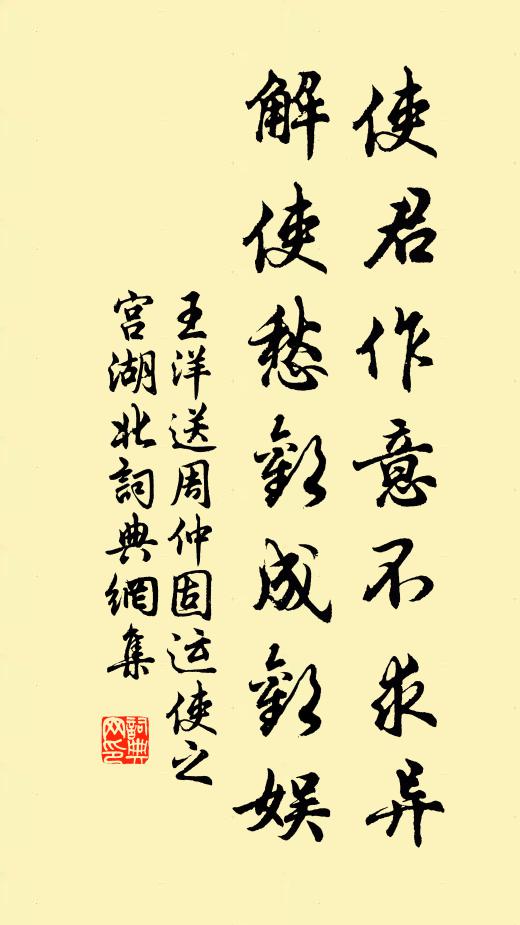 使君作意不求异
解使愁歡成歡娛
王洋送周仲固运使之
宫湖北詞典網集
詞典网印